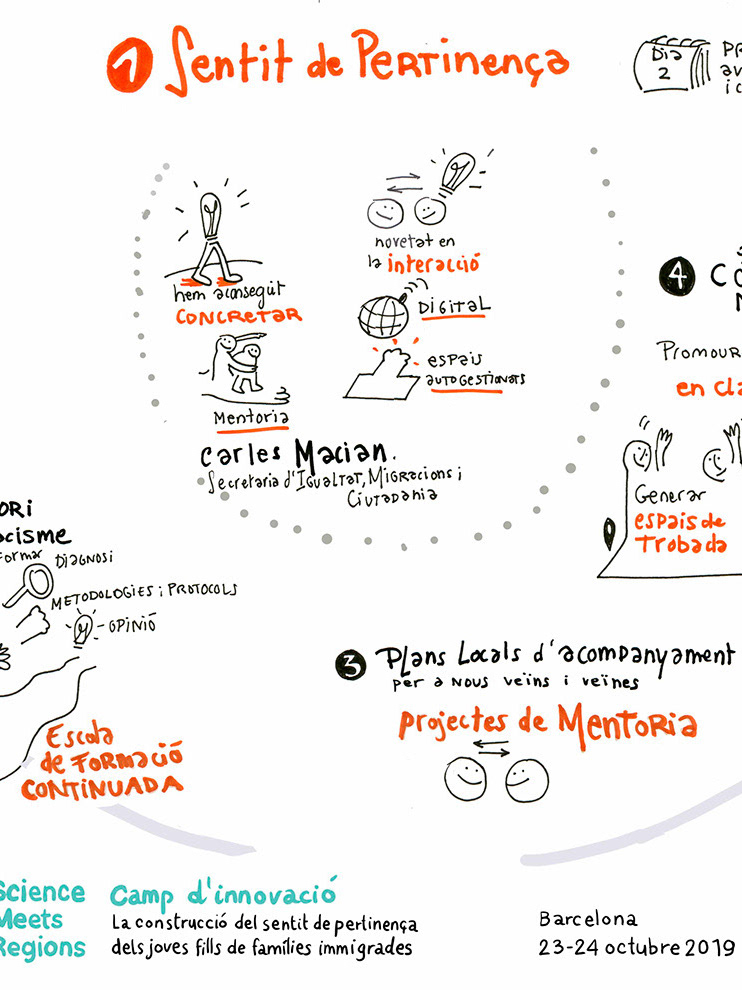 1 Sentit de Pertinença
Dia
2
hem aconsegüt
CONCRETAR
novetat en
la interacció
DIGITAL
espais
autogestionats
Mentoria
Carles Macian.
Secretaria d'Igualtat, Migracions i
Ciutadania
4
Promour
en cla
Generar
espais de
Trobada
ORI
cisme
Formar
Diagnosi
METODOLOGIES i PROTOCOLS
-OPINIÓ
Escola
de Formació
CONTINUADA
3 Plans Locals d'acompanyament
per a nous veïns i veïnes
projectes de Mentoria
Science
Meets
Regions
Camp d'innovació
La construcció del sentit de pertinença
dels joves fills de famílies immigrades
Barcelona
23-24 octubre 2019